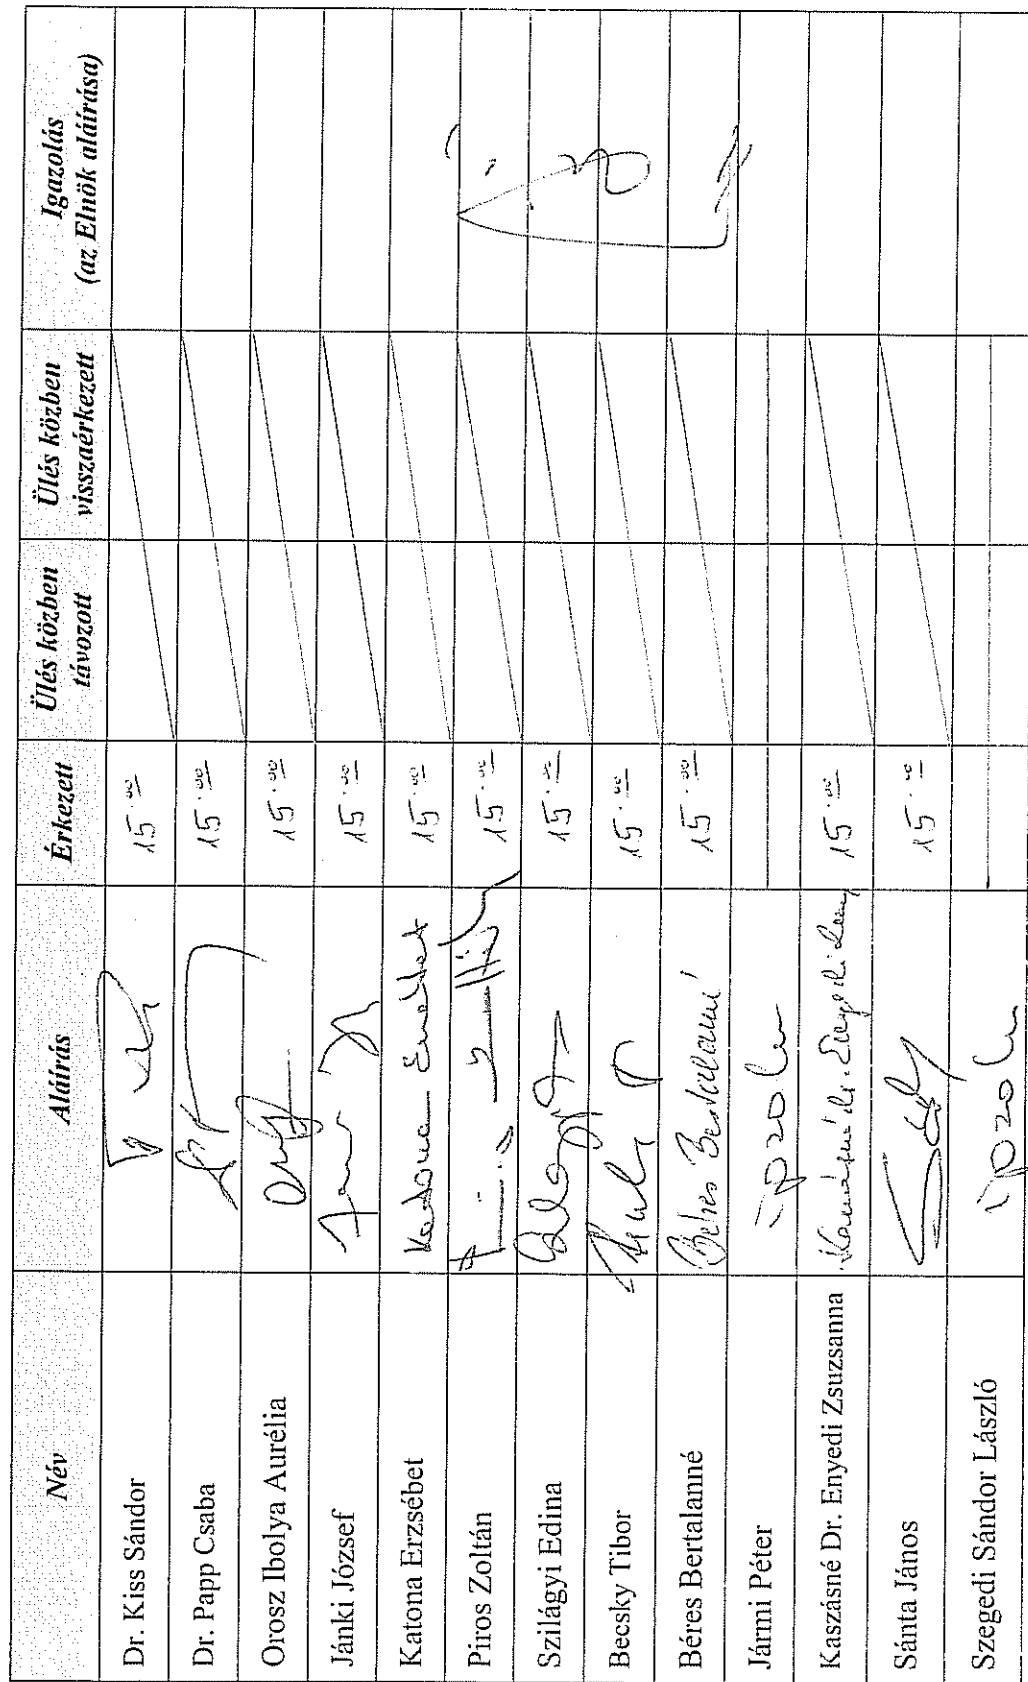 Név Aláírás Érkezett Ülés közben távozott Ülés közben visszaérkezett Igazolás (az Elnök aláírása)
Dr. Kiss Sándor 15.00
Dr. Papp Csaba 15.00
Orosz Ibolya Aurélia 15.00
Jánki József 15.00
Katona Erzsébet Katona Erzsébet 15.00
Piros Zoltán 15.00
Szilágyi Edina 15.00
Becsky Tibor 15.00
Béres Bertalanné Béres Bertalanné 15.00
Jármi Péter igazolva
Kaszásné Dr. Enyedi Zsuzsanna 15.00
Sánta János 15.00
Szegedi Sándor László igazolva